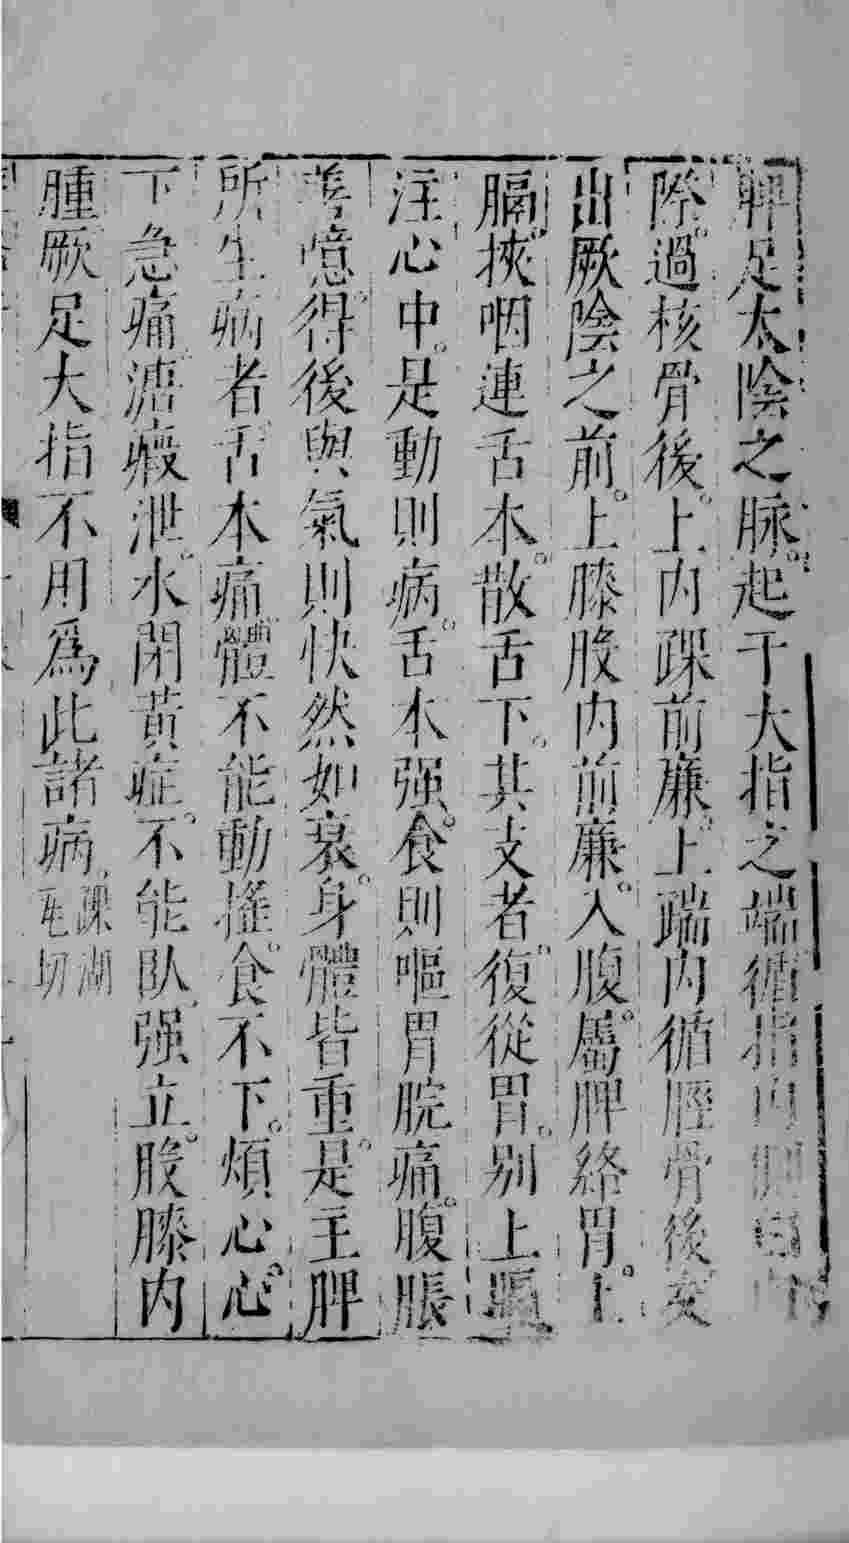 脾足太陰之脉起于大指之端循指内側白肉
際。過核骨後。上内踝前廉。上踹内循脛骨後交
出厥陰之前。上膝股内前廉。入腹。屬脾絡胃。上
膈。挾咽連舌本。散舌下。其支者。復從胃。别上膈
注心中。是動則病。舌本强。食則嘔胃脘痛。腹脹
善噫得後與氣則快然如衰。身體皆重。是主脾
所生病者舌本痛。體不能動摇。食不下。煩心。心
下急痛。溏瘕泄。水閉黄疸。不能臥。强立。股膝内
腫厥足大指不用爲此諸病。踝湖瓦切